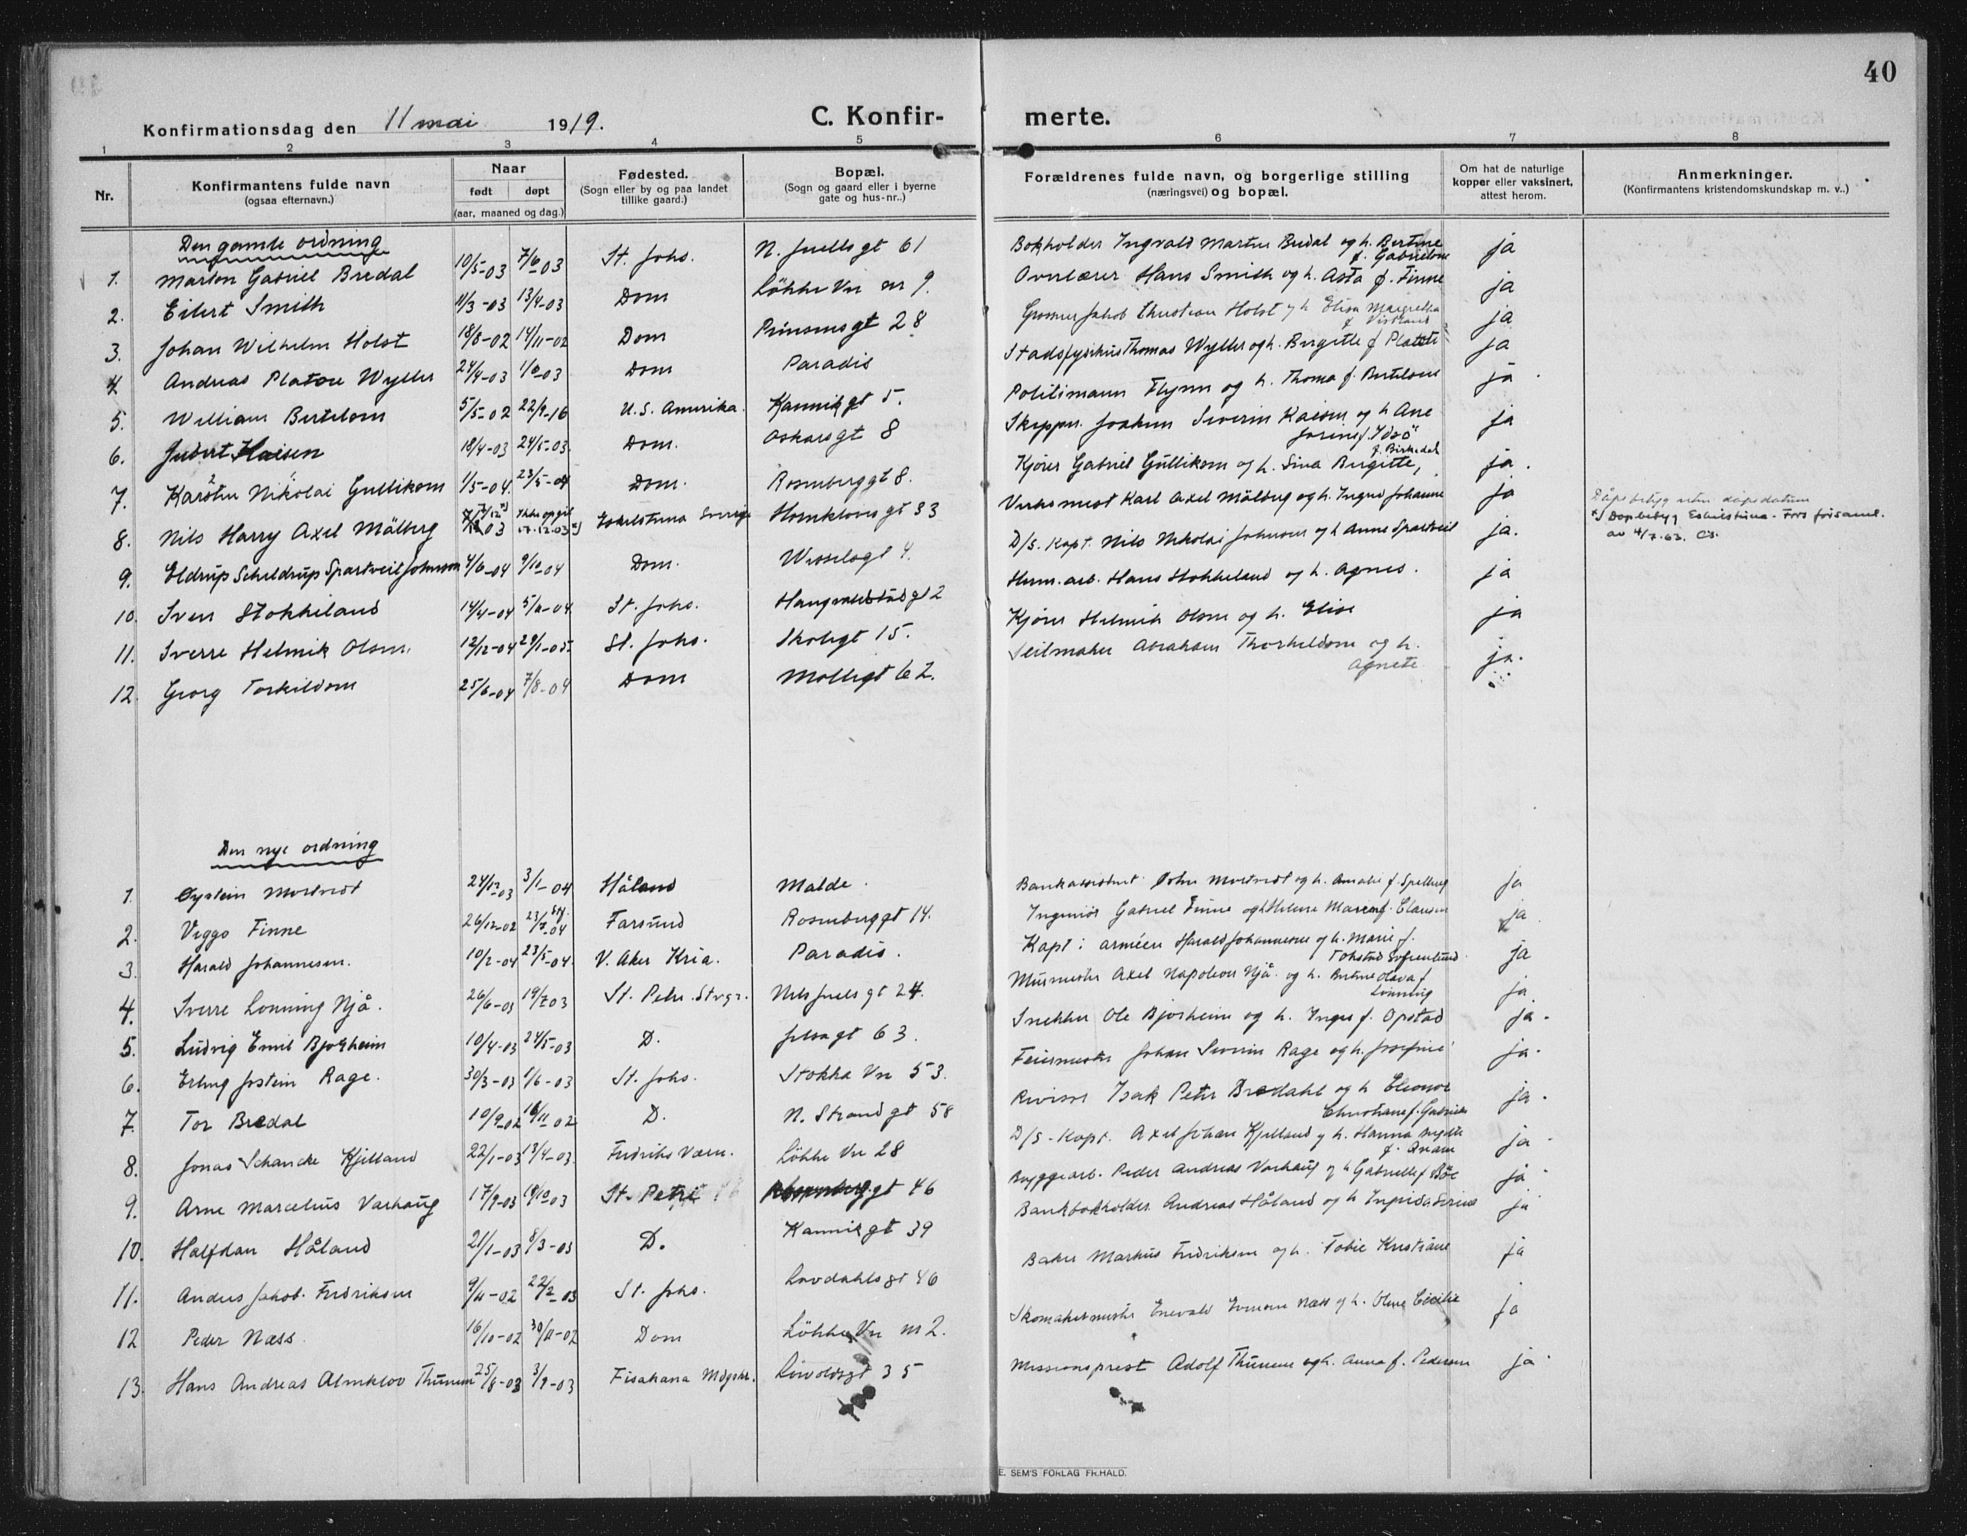 40
Konfirmationsdag den 11 mai 1919.
C. Konfir-
merte.
1 2 3 4 5 6 7 8
Nr.
Konfirmantens fulde navn
(ogsaa efternavn.)
Naar
født døpt
(aar, maaned og dag.)
Fødested.
(Sogn eller by og paa landet
tillike gaard.)
Bopæl.
(Sogn og gaard eller i byerne
gate og hus-nr..)
Forældrenes fulde navn, og borgerlige stilling
(næringsvei) og bopæl.
Om hat de naturlige
kopper eller vaksinert,
attest herom.
Anmerkninger.
(Konfirmantens kristendomskundskap m. v..)
Den gamle ordning
1. Marton Gabriel Bredal 10/5-03 7/6 03 St. Johs. N. Juellsgt 61 Bokholder Ingvald Martin Bredal og h. Bertine f. Gabrielsen ja
2. Eilert Smith 11/3-03 13/4-03 Dom Løkke Vei nr 9. Overlærer Hans Smith og h. Asta f. Finne ja
3. Johan Wilhelm Holst 18/8-02 14/11-02 Dom Prinsensgt 28 Jakob Christian Holst og h. Elisa ja
4. Andreas Platou Wyller 24/4-03 Dom Paradis Stadsfysikus Thomas Wyller og h. Birgitte f. ja
5. William Bertelsen 5/5-02 22/9-16 U.S. Amerika. Kannikgt 5. Politimann Flynn og h. Thoma f. Bertelsen ja
6. 18/4-03 24/5-03 Dom. Oskarsgt 8 Skipper. Joakim Severin og h Ane ja
7. Karsten Nikolai Gullikssen 1/5-04. 23/5-04 Dom. Rosenberggt 8. Kjører Gabriel Gulliksen og h. Sina Birgitte, f. Birkedal ja.
8. Nils Harry Axel Mälberg Eskilstuna Sverige Holmklovsgt 33 Verksmest Karl Axel Mälberg og h. Ingrid Johanne ja
Dåpsbetyg uten dåpsdatum
Dopbetyg Eskilstuna - Fors församl.
av 4/7.63.
9. Eldrup Scheldrup Spartveit Johnsen 4/6-04 9/10-04 Dom. Wesselsgt 4. D/S. Kapt. Nils Nikolai Johnsen og h Anne Spartveit ja.
10. Sven Stokkeland 14/4-04 St. Johs. gt 2 Herm. arb. Hans Stokkeland og h. Agnes. ja
11. Sverre Helmik Olsen 12/12-04 29/1-05. St. Johs. Skolegt 15. Kjører Helmik Olsen og h. Elise ja
12. Georg Torkildsen 25/6-04 7/8-04 Dom Møllegt 62. Seilmaker Abraham Thorkeldsen og h. Agnete ja.
Den nye ordning
1. Øystein 24/12-03 3/1-04 Håland Malde. Bankassistent John og h. Amalie f. ja
2. Viggo Finne 26/12-02 Farsund Rosenberggt 14. Ingeniør Gabriel Finne og h Helene Maren f. Clausen ja
3. Harald Johannesen. 10/2-04 23/5-04. V. Aker Kria. Paradis. Kapt i arméen Harald Johannesen og h. Marie f. ja
4. Sverre Lonning Njå. 26/6-03 19/7 03 St. Petri. Stvgr. Nils Juelsgt 24. Murmester Axel Napoleon Njå. og h. Bertine Olava f. Lönning ja
5. Ludvig Emil Bjorheim 10/4-03 24/5-03 D. Jelsagt 63. Snekker Ole Bjorheim og h. Inger f. Opstad ja.
6. Erling Jostein Rage. 30/3-03 1/6-03 St. Johs. Stokka Vei 53. Feiermester Johan Severin Rage og h. Josefine ja.
7. Tor Bredal 10/9 02 16/11 02 D. N. Strandgt 58 Revisor Isak Peter Bredahl og h Eleonor Christiane f. ja.
8. Jonas Schancke Kjelland 22/1-03 13/4-03. Fredriks Værn. Løkke Vei 28 D/S-Kapt. Axel Johan Kjelland og h. Hanna ja.
9. Arne Marcelius Varhaug 17/9-03 St. Petri gt 46 Byggearb. Peder Andreas Varhaug og h Gabrielle f Bøe ja
10. Halfdan Håland 21/1-03 8/3-03 D. Kannikgt 39 Bankbokholder Andreas Håland og h ja
11. Anders Jakob Fredriksen 9/11-02 22/2-03 St. Johs. Lovdahlsgt 46 Baker Markus Fredriksen og h. Tobie Kristiane ja
12 Peder Næss. 16/10-02 30/11-02 Dom Løkke Vei nr 2. Skomakermester Enevald Næss og h. Oline Cecilie ja
13. Hans Andreas Almklov Thunem 25/8-03 3/9-03 Fisakana Mdgskr. 35 Missionsprest Adolf Thunem og h. Anna f. Pedersen ja
E. SEM'S FORLAG FR.HALD.